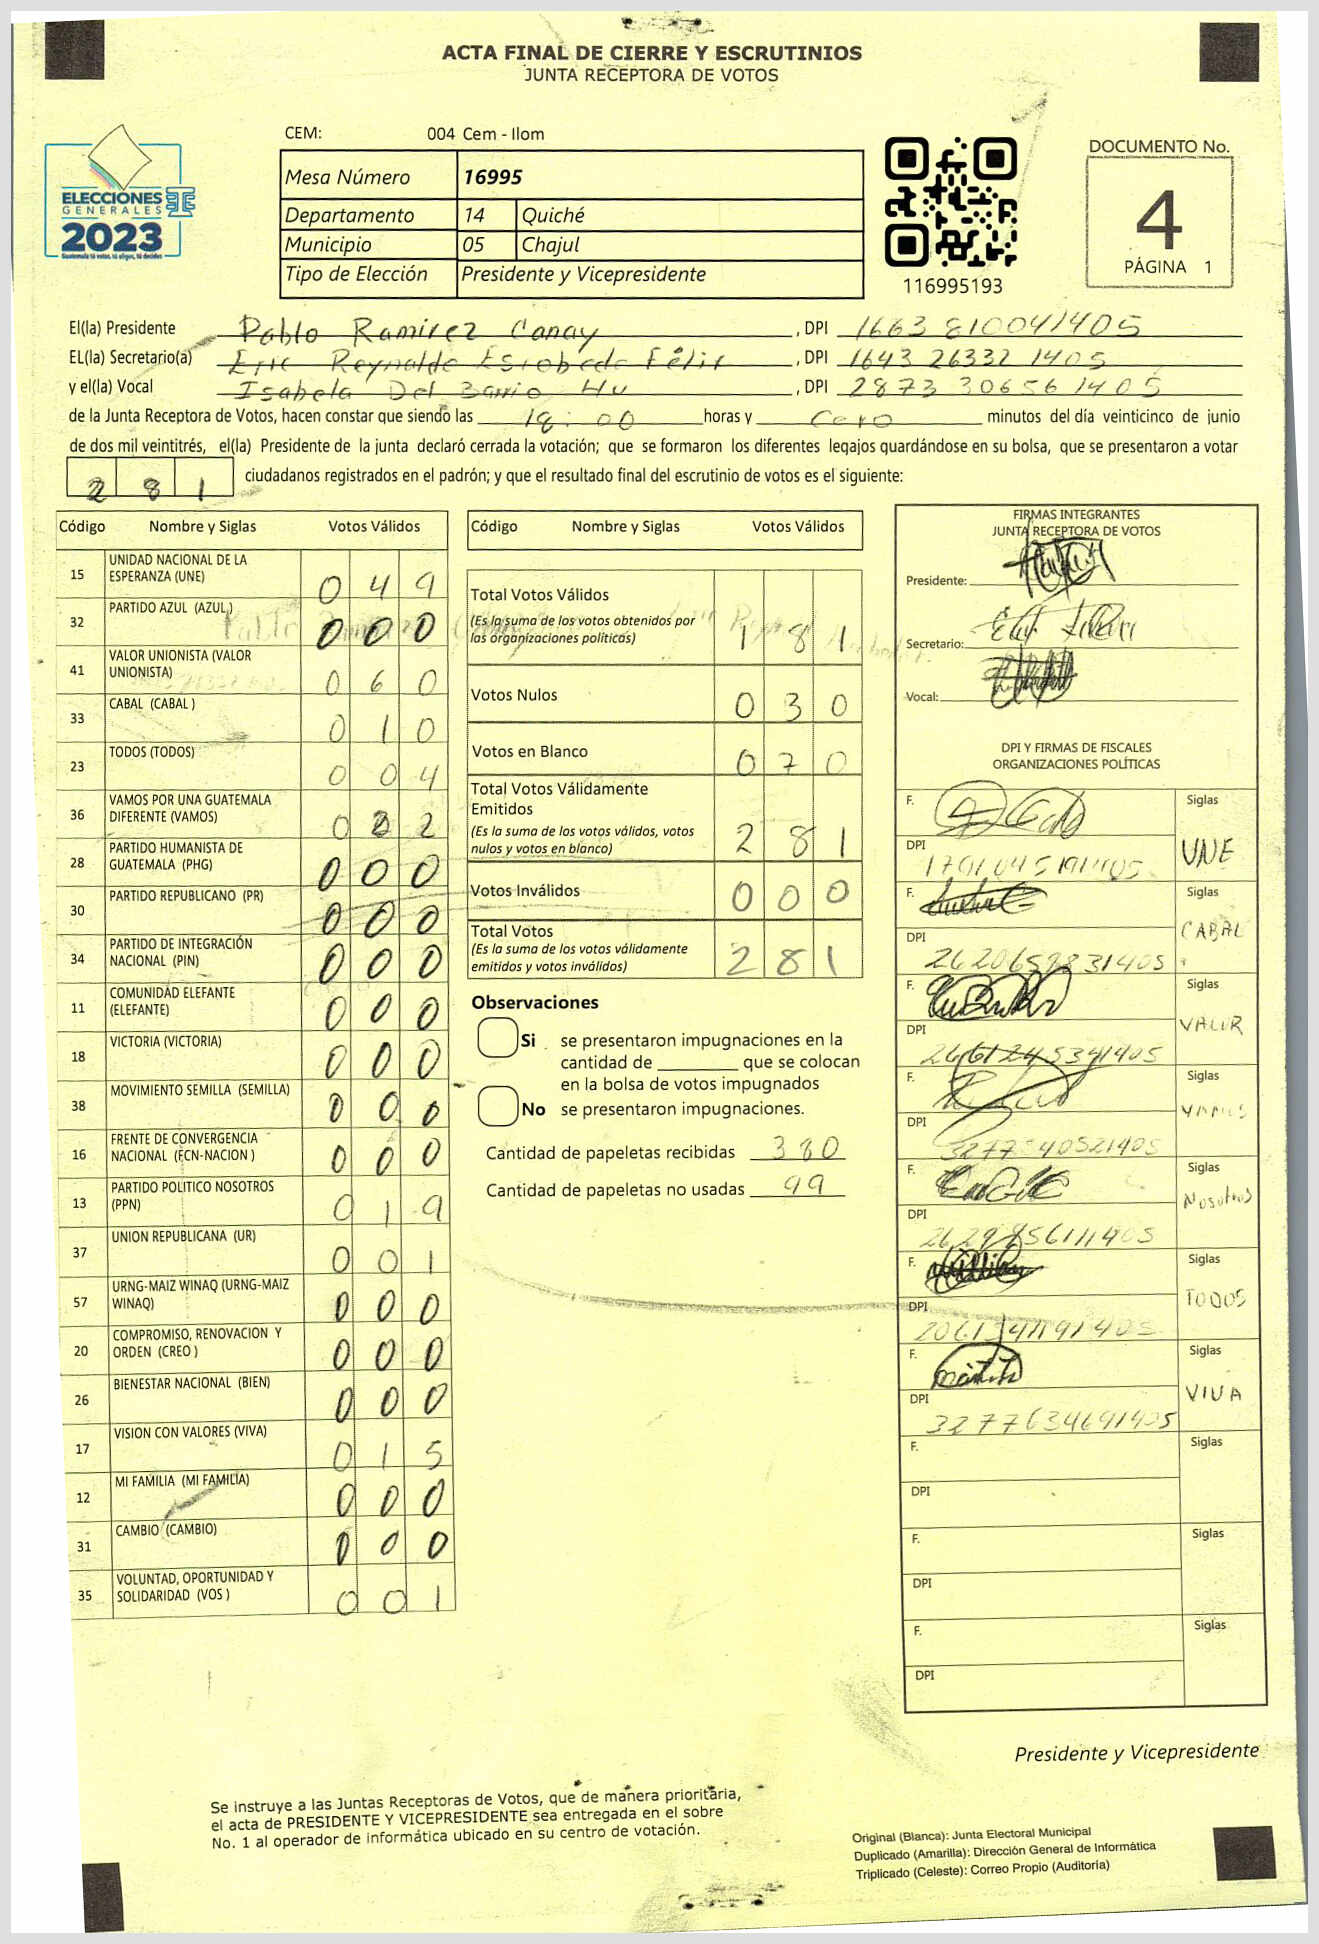 ACTA FINAL DE CIERRE Y ESCRUTINIOS
JUNTA RECEPTORA DE VOTOS
CEM: 004 Cem - Ilom
ELECCIONES
GENERALES
2023
Guatemala tú votas, tú eliges, tú decides
Mesa Número 16995
Departamento 14 Quiché
Municipio 05 Chajul
Tipo de Elección Presidente y Vicepresidente
116995193
DOCUMENTO No.
4
PÁGINA 1
El(la) Presidente Pablo Ramirez Canay, DPI 1663 81004 1405
EL(la) Secretario(a) Eric Reynaldo Escobedo Félix, DPI 1643 26332 1405
y el(la) Vocal Isabela Del Barrio Hu, DPI 2873 30656 1405
de la Junta Receptora de Votos, hacen constar que siendo las 18:00 horas y Cero minutos del día veinticinco de junio
de dos mil veintitrés, el(la) Presidente de la junta declaró cerrada la votación; que se formaron los diferentes legajos guardándose en su bolsa, que se presentaron a votar
2 8 1 ciudadanos registrados en el padrón; y que el resultado final del escrutinio de votos es el siguiente:
Código Nombre y Siglas Votos Válidos
15 UNIDAD NACIONAL DE LA ESPERANZA (UNE) 0 4 9
32 PARTIDO AZUL (AZUL) 0 0 0
41 VALOR UNIONISTA (VALOR UNIONISTA) 0 6 0
33 CABAL (CABAL) 0 1 0
23 TODOS (TODOS) 0 0 4
36 VAMOS POR UNA GUATEMALA DIFERENTE (VAMOS) 0 2 2
28 PARTIDO HUMANISTA DE GUATEMALA (PHG) 0 0 0
30 PARTIDO REPUBLICANO (PR) 0 0 0
34 PARTIDO DE INTEGRACIÓN NACIONAL (PIN) 0 0 0
11 COMUNIDAD ELEFANTE (ELEFANTE) 0 0 0
18 VICTORIA (VICTORIA) 0 0 0
38 MOVIMIENTO SEMILLA (SEMILLA) 0 0 0
16 FRENTE DE CONVERGENCIA NACIONAL (FCN-NACION) 0 0 0
13 PARTIDO POLITICO NOSOTROS (PPN) 0 1 9
37 UNION REPUBLICANA (UR) 0 0 1
57 URNG-MAIZ WINAQ (URNG-MAIZ WINAQ) 0 0 0
20 COMPROMISO, RENOVACION Y ORDEN (CREO) 0 0 0
26 BIENESTAR NACIONAL (BIEN) 0 0 0
17 VISION CON VALORES (VIVA) 0 1 5
12 MI FAMILIA (MI FAMILIA) 0 0 0
31 CAMBIO (CAMBIO) 0 0 0
35 VOLUNTAD, OPORTUNIDAD Y SOLIDARIDAD (VOS) 0 0 1
Código Nombre y Siglas Votos Válidos
Total Votos Válidos
(Es la suma de los votos obtenidos por
las organizaciones políticas) 1 8 1
Votos Nulos 0 3 0
Votos en Blanco 0 7 0
Total Votos Válidamente
Emitidos
(Es la suma de los votos válidos, votos
nulos y votos en blanco) 2 8 1
Votos Inválidos 0 0 0
Total Votos
(Es la suma de los votos válidamente
emitidos y votos inválidos) 2 8 1
Observaciones
Si se presentaron impugnaciones en la
cantidad de ______ que se colocan
en la bolsa de votos impugnados
No se presentaron impugnaciones.
Cantidad de papeletas recibidas 380
Cantidad de papeletas no usadas 99
FIRMAS INTEGRANTES
JUNTA RECEPTORA DE VOTOS
Presidente:
Secretario:
Vocal:
DPI Y FIRMAS DE FISCALES
ORGANIZACIONES POLÍTICAS
F. Siglas
DPI UNE
F. Siglas
DPI CABAL
F. Siglas
DPI 2661245341405 VALOR
F. Siglas
DPI VAMOS
F. Siglas
DPI Nosotros
F. Siglas
DPI TODOS
F. Siglas
DPI 3277634691405 VIVA
F. Siglas
DPI
F. Siglas
DPI
F. Siglas
DPI
Presidente y Vicepresidente
Se instruye a las Juntas Receptoras de Votos, que de manera prioritaria,
el acta de PRESIDENTE Y VICEPRESIDENTE sea entregada en el sobre
No. 1 al operador de informática ubicado en su centro de votación.
Original (Blanca): Junta Electoral Municipal
Duplicado (Amarilla): Dirección General de Informática
Triplicado (Celeste): Correo Propio (Auditoría)